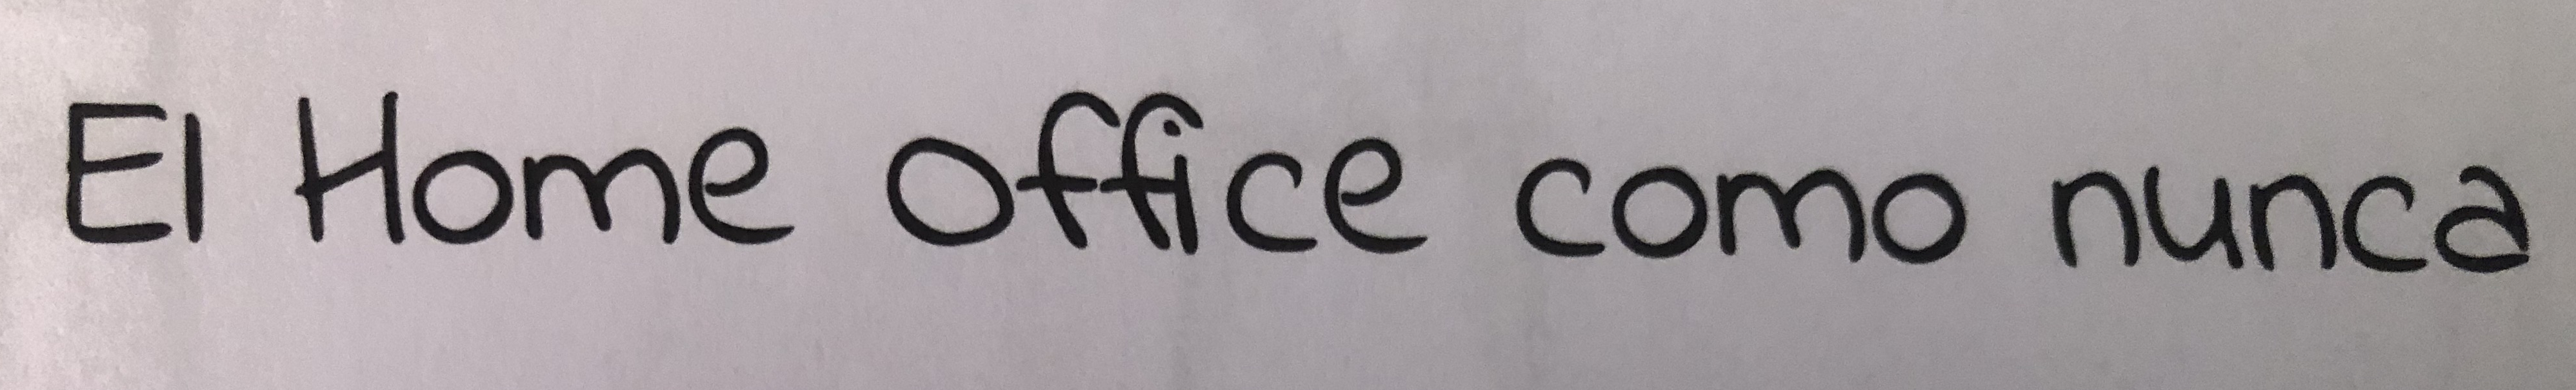 El Home office como nunca